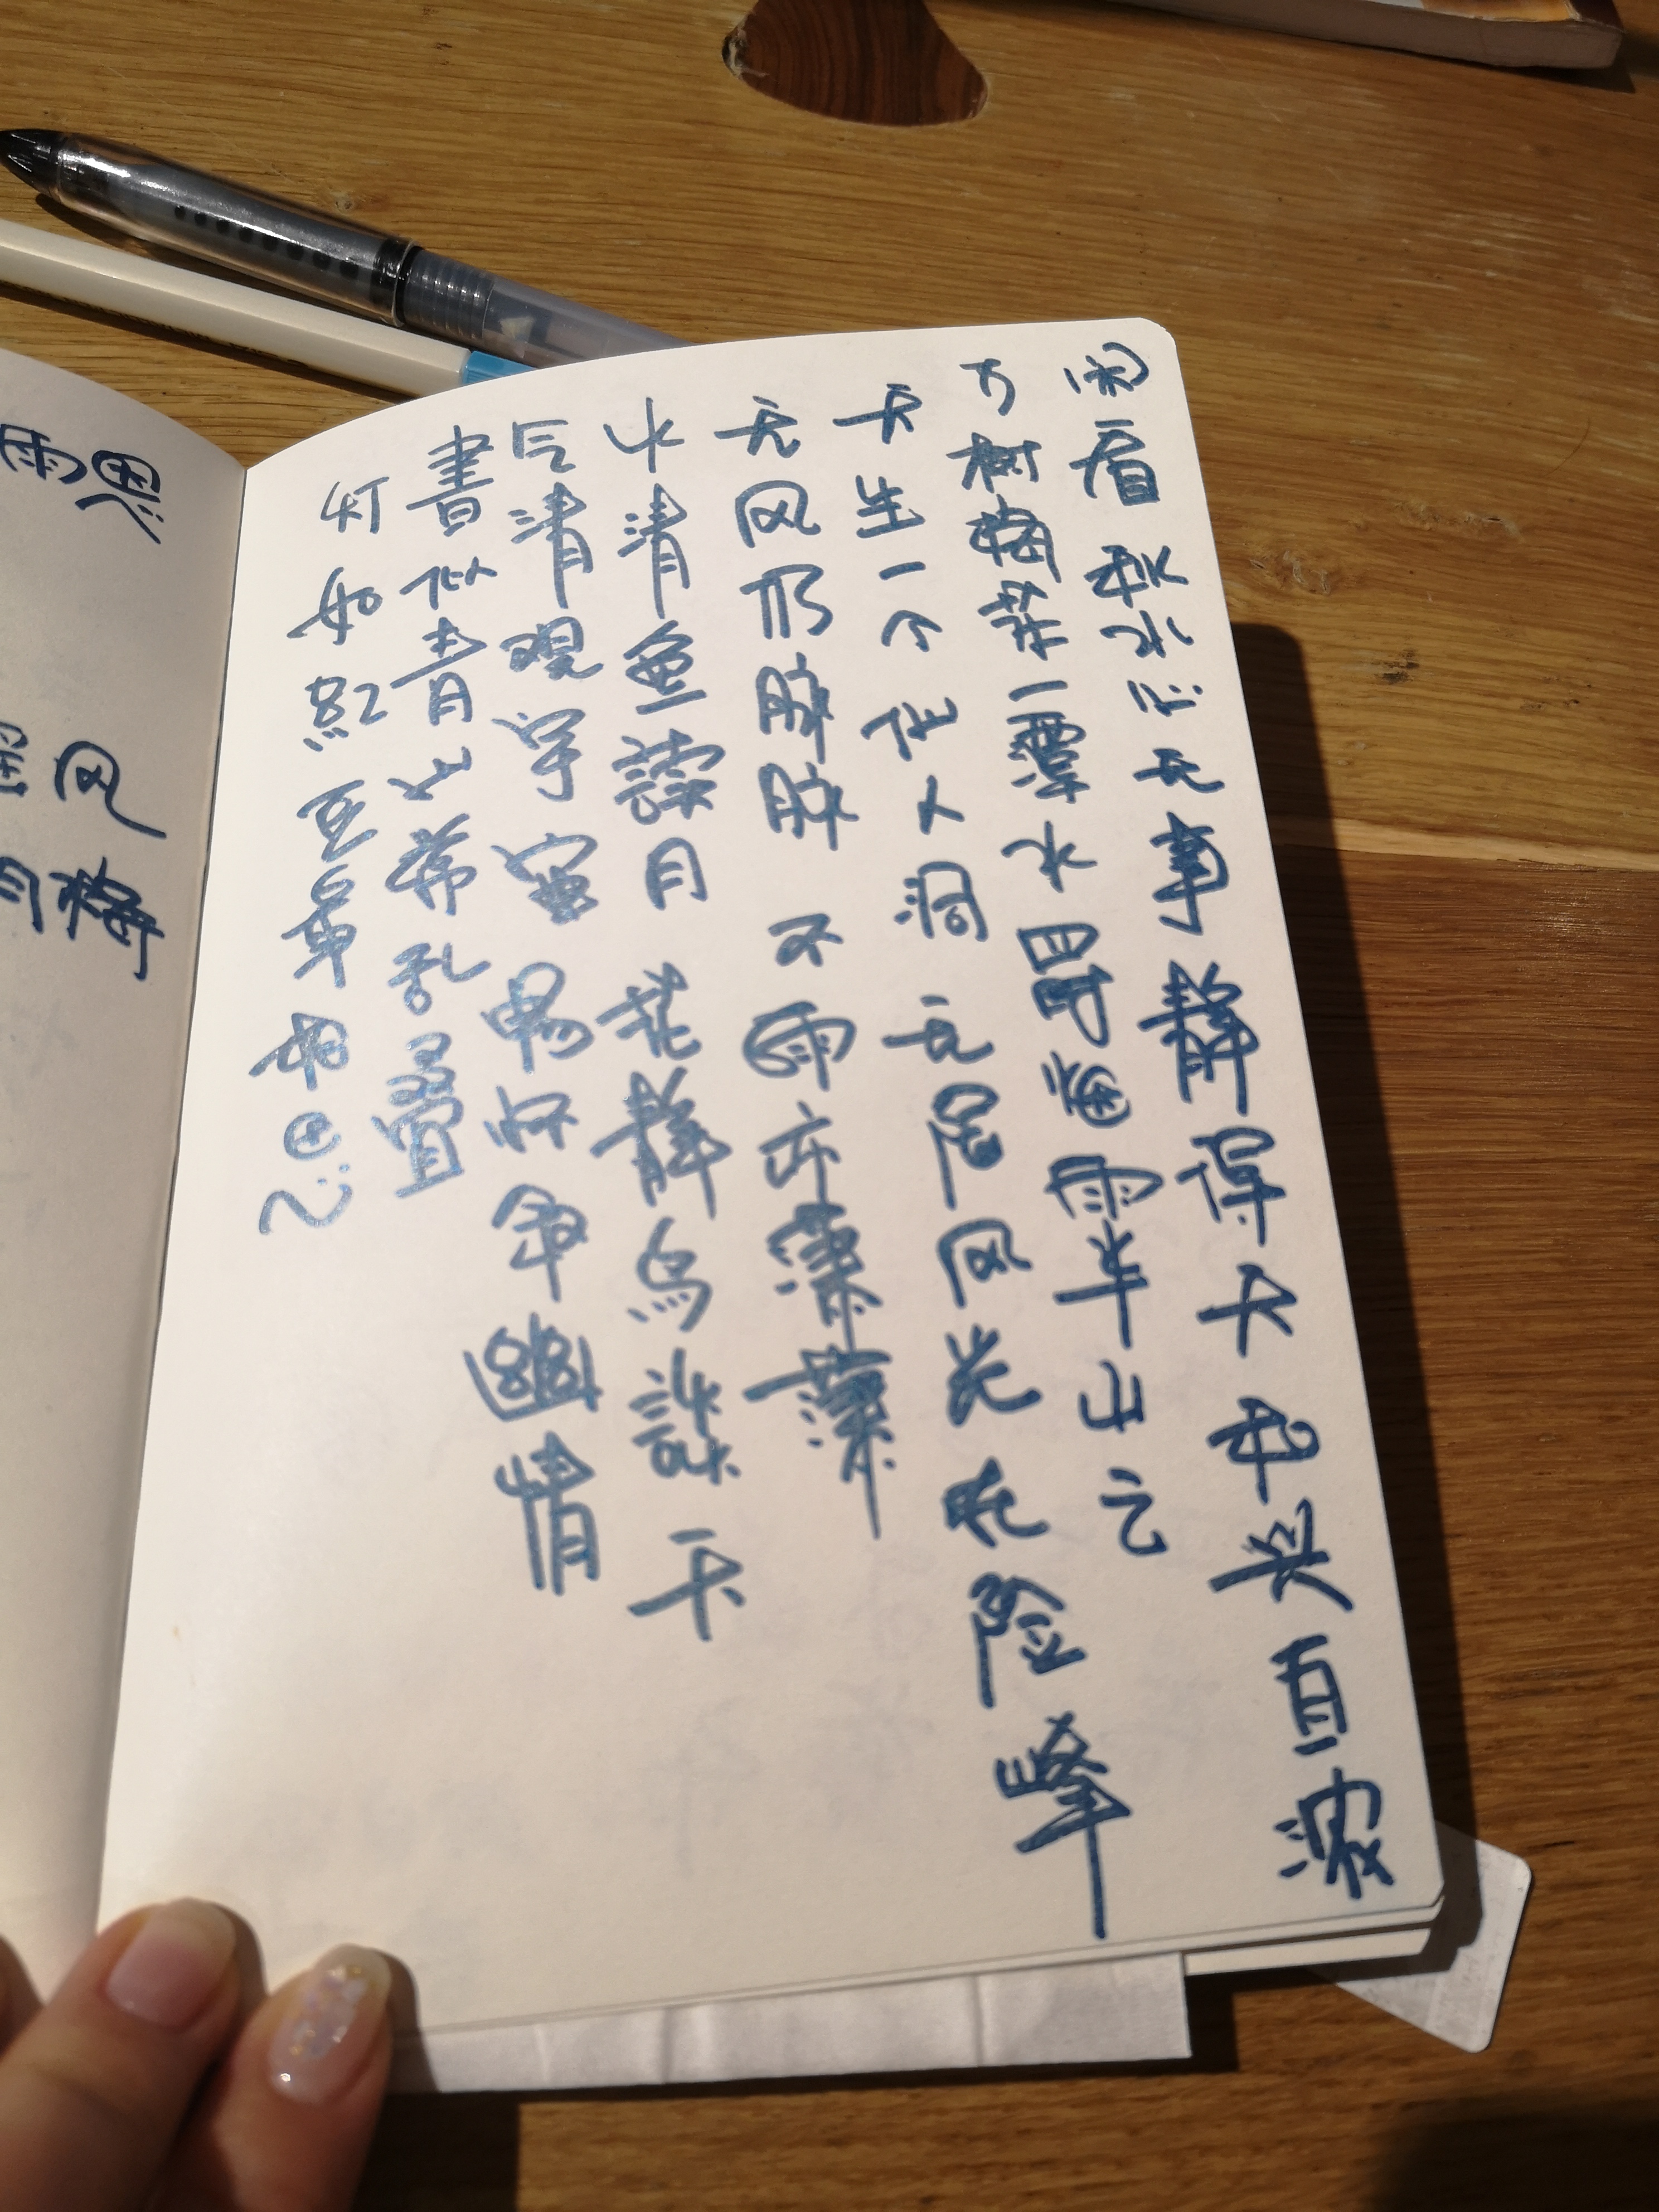 闲看秋水心无事 静得天和兴自浓
万树梅花一潭水 四时烟雨半山云
天生一个仙人洞 无限风光在险峰
无风仍脉脉 不雨亦潇潇
水清鱼讀月 花静鸟談天
气清观宇宙 畅怀叙幽情
書似青山常乱疊
灯如红豆最相思
雨思
风
月梅